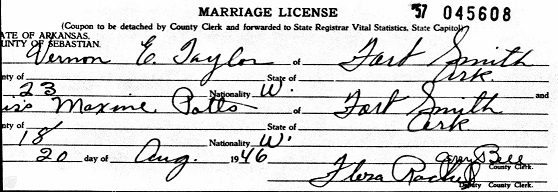 MARRIAGE LICENSE '57 045608
(Coupon to be detached by County Clerk and forwarded to State Registrar Vital Statistics, State Capitol)
ATE OF ARKANSAS.
UNTY OF SEBASTIAN.
Vernon E. Taylor of Fort Smith
nty of State of Ark.
23 Nationality W. and
iss Maxine Potts of Fort Smith
nty of State of Ark
18 Nationality W.
20 day of Aug. 1946 Bell
County Clerk.
Flora
Deputy County Clerk.